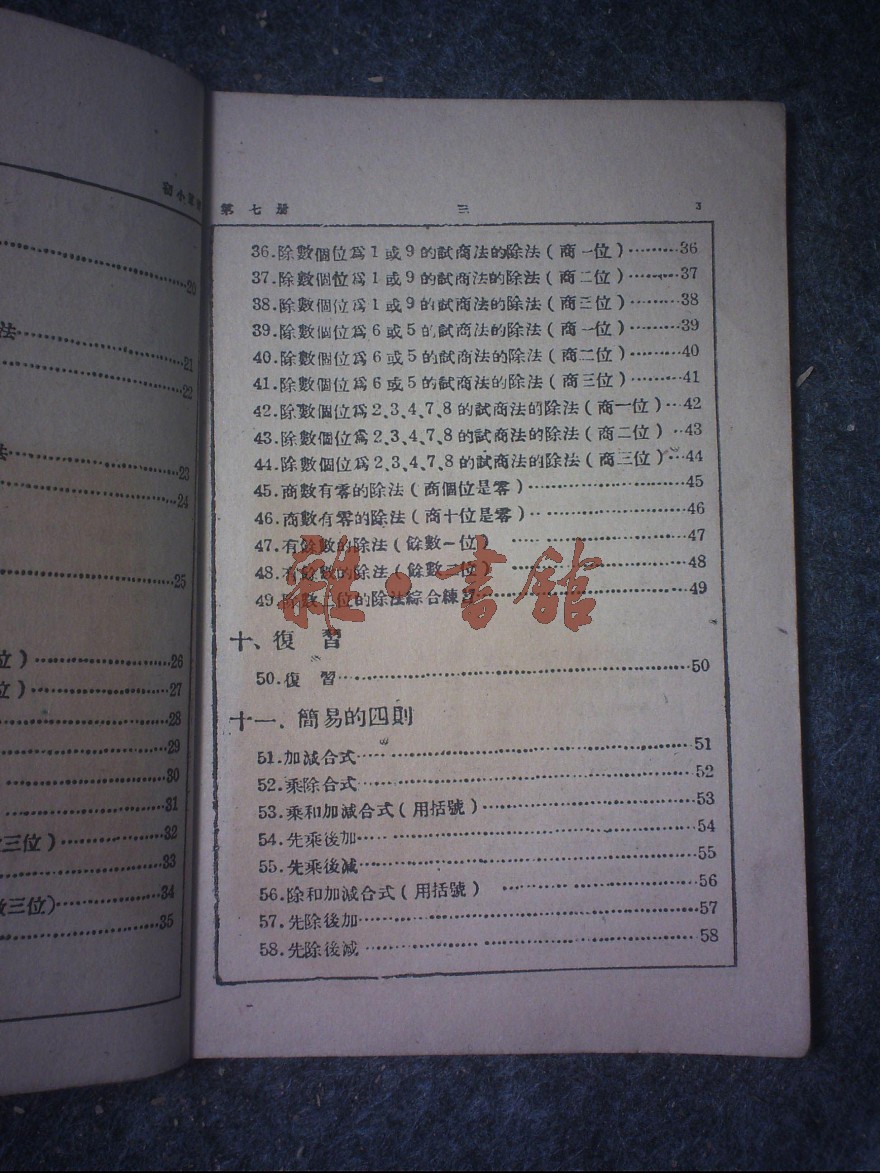 20
法
21
22
法
23
24
25
位)
26
位)
27
28
29
30
31
三位)
32
33
數三位)
34
35
第七册 三 3
36.除數個位爲1或9的試商法的除法(商一位)………36
37.除數個位爲1或9的試商法的除法(商二位)………37
38.除數個位爲1或9的試商法的除法(商三位)………38
39.除數個位爲6或5的試商法的除法(商一位)………39
40.除數個位爲6或5的試商法的除法(商二位)………40
41.除數個位爲6或5的試商法的除法(商三位)………41
42.除數個位爲2、3、4、7、8的試商法的除法(商一位)…42
43.除數個位爲2、3、4、7、8的試商法的除法(商二位)…43
44.除數個位爲2、3、4、7、8的試商法的除法(商三位)…44
45.商數有零的除法(商個位是零)………………45
46.商數有零的除法(商十位是零)………………46
47.有餘數的除法(餘數一位)………………47
48.有餘數的除法(餘數二位)………………48
49.除數二位的除法綜合練習………………49
雜·書館
十、復習
50.復習………………50
十一、簡易的四則
51.加減合式………………51
52.乘除合式………………52
53.乘和加減合式(用括號)………………53
54.先乘後加………………54
55.先乘後減………………55
56.除和加減合式(用括號)………………56
57.先除後加………………57
58.先除後減………………58